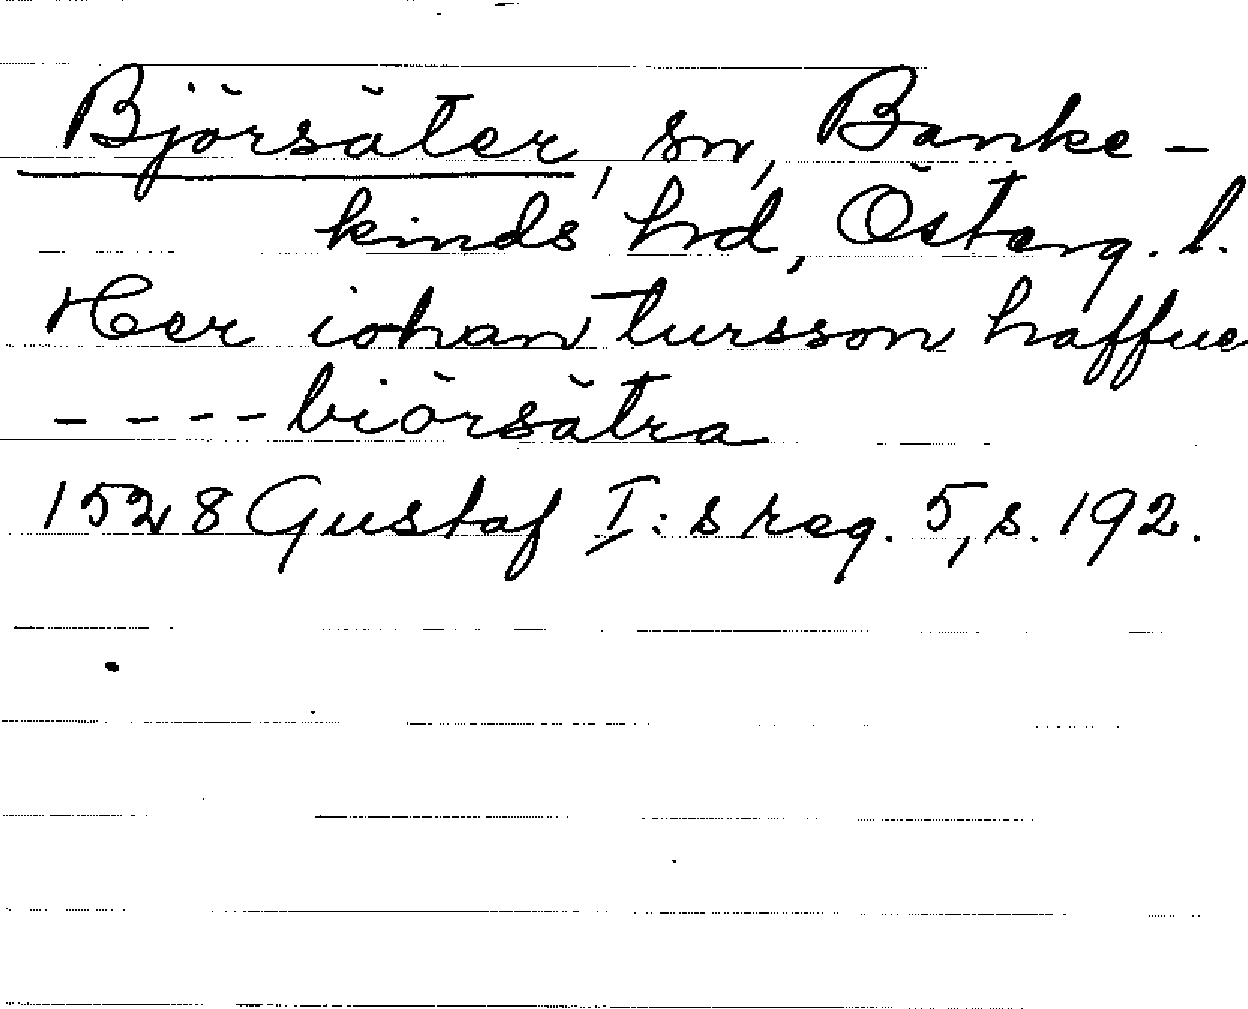 Björsäter, sn, Banke-
kinds hd, Österg. l.
Her iohan tursson haffue
---- biörsätra
1528 Gustaf I:s reg. 5, s. 192.